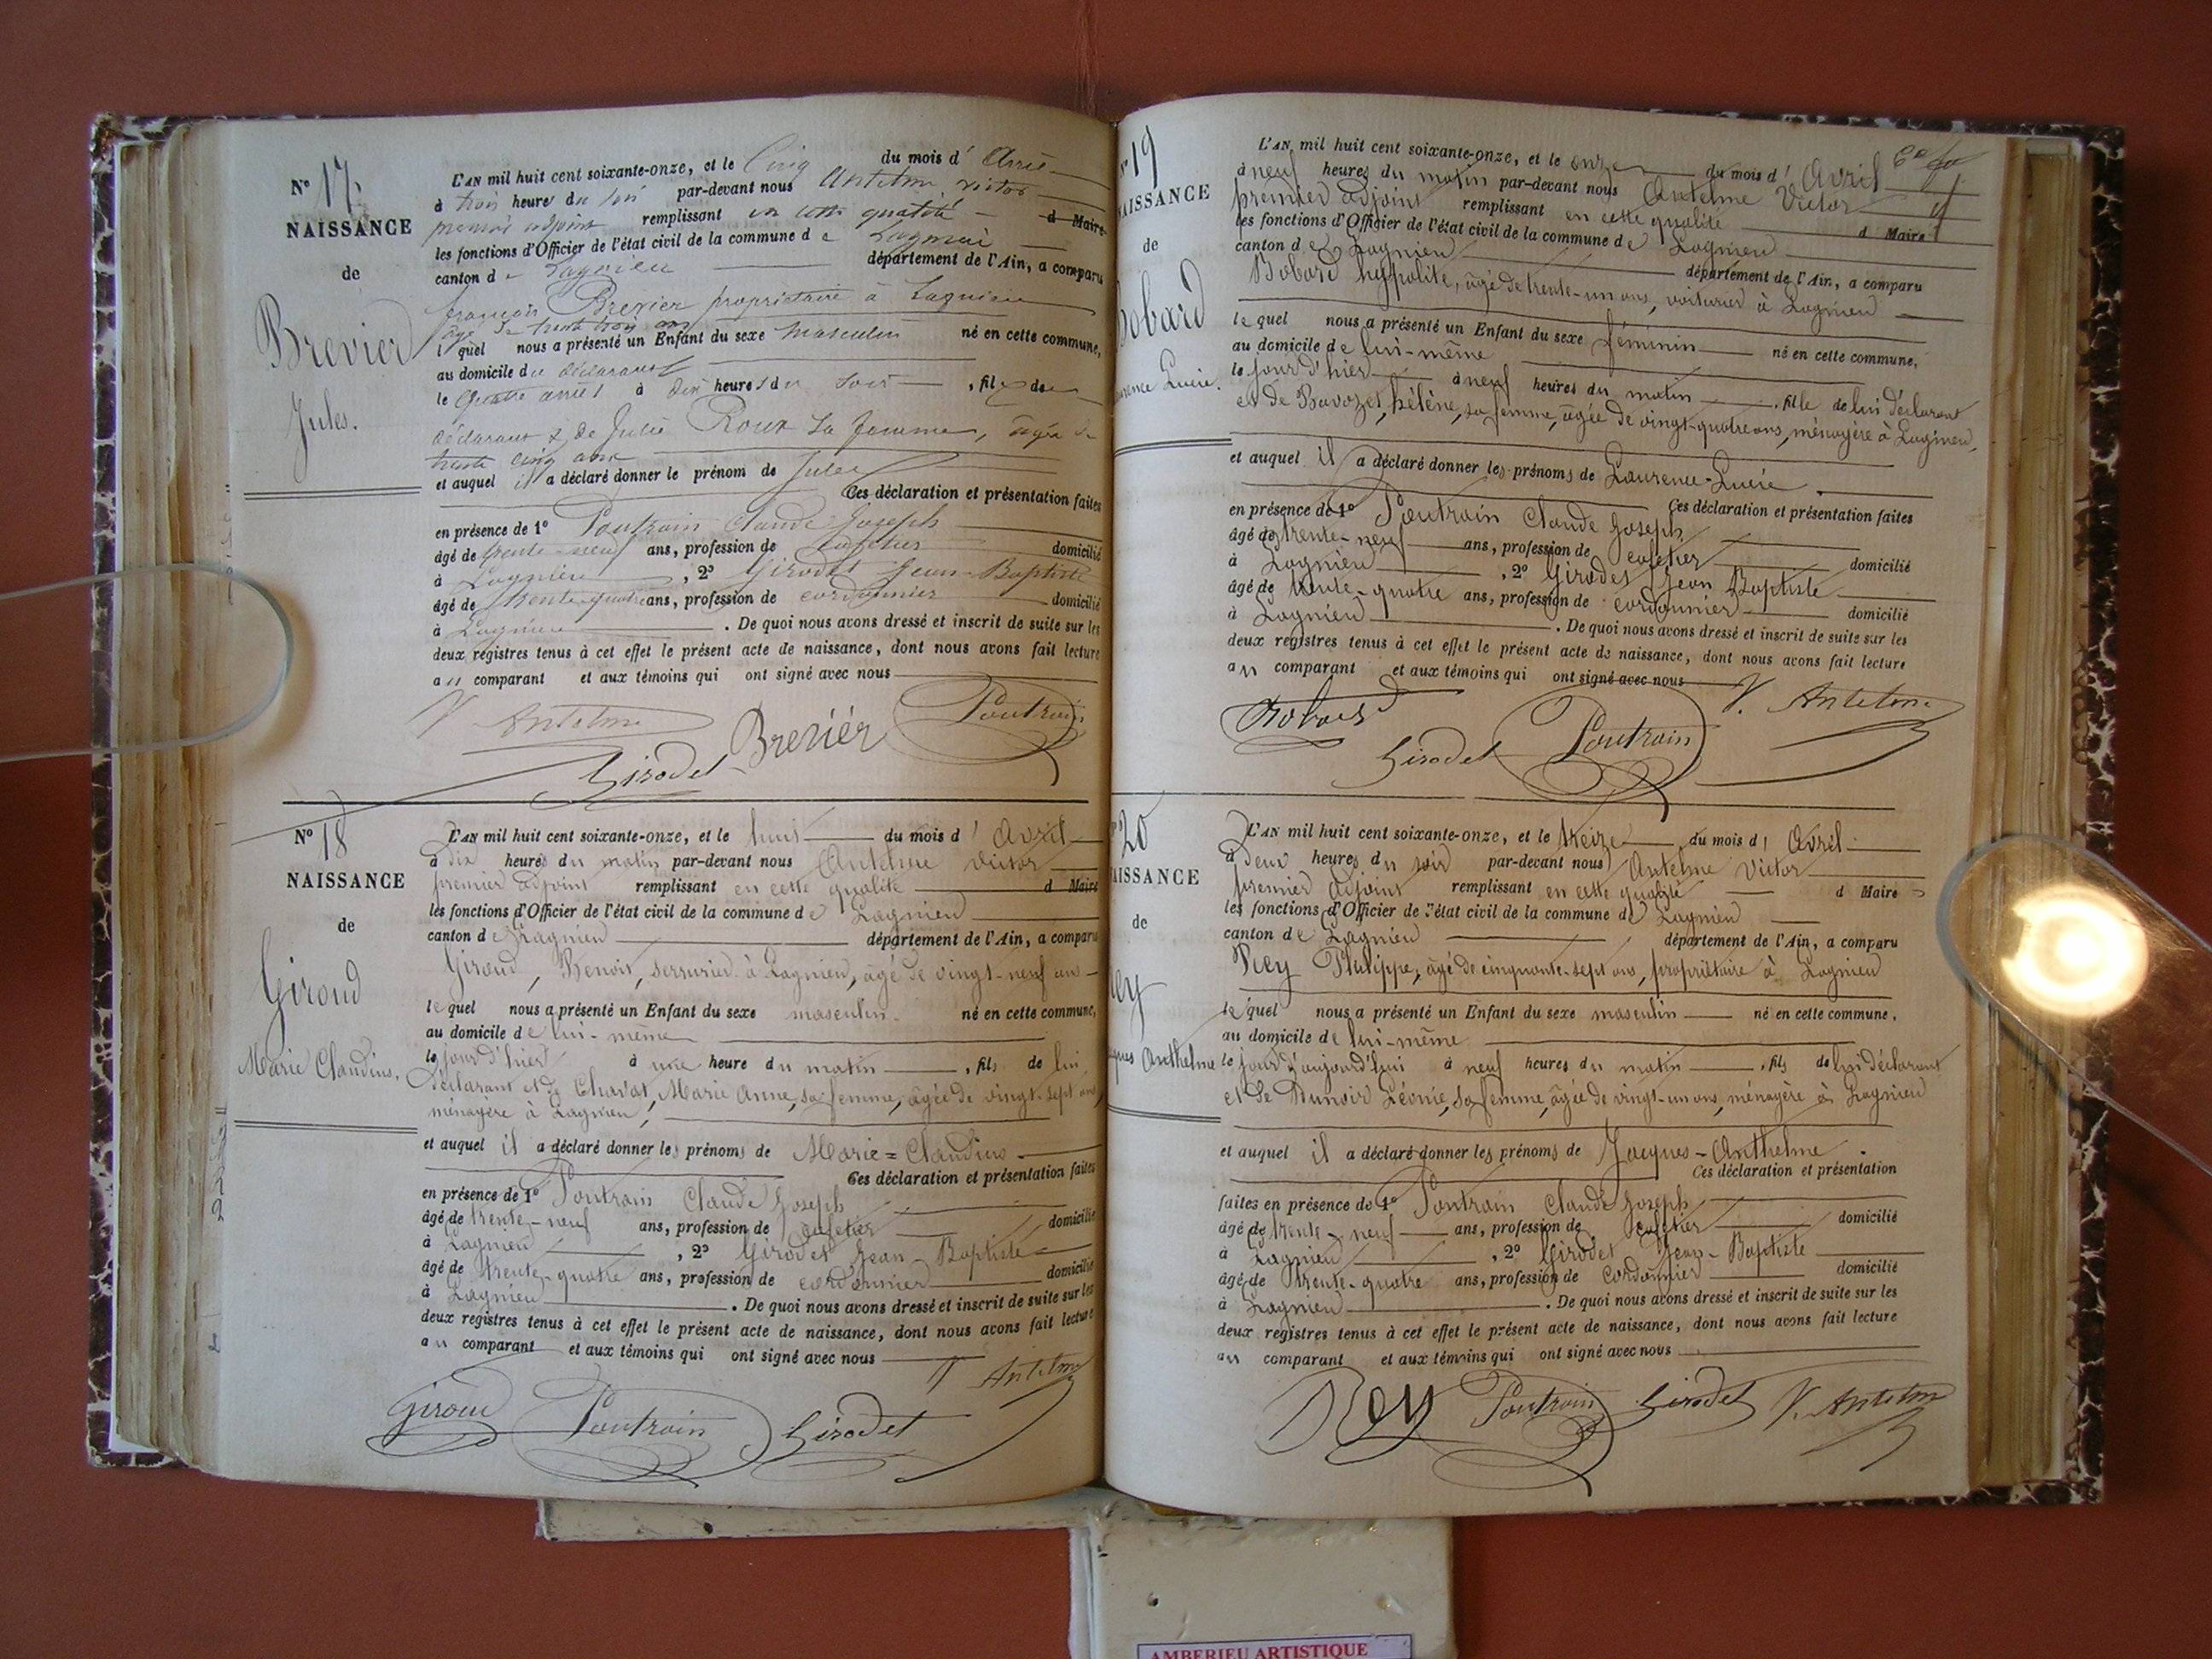 N° 17.
NAISSANCE
de
Brevier
Jules.
L'AN mil huit cent soixante-onze, et le Cinq du mois d'
à trois heure du soir par-devant nous Antelme Victor
premier adjoint remplissant en cette qualité d Maire
les fonctions d'Officier de l'état civil de la commune de Lagnieu
canton de Lagnieu département de l'Ain, a comparu
françois Brevier propriétaire à Lagnieu
âgé de trente trois ans
lequel nous a présenté un Enfant du sexe masculin né en cette commune,
au domicile du déclarant
le quatre à dix heures du soir, fils de
déclarant & de Julie Roux sa femme, âgée de
trente cinq ans
et auquel il a déclaré donner le prénom de Jules
Ces déclaration et présentation faites
en présence de 1° Poutrain Claude Joseph
âgé de trente-neuf ans, profession de cafetier domicilié
à Lagnieu, 2° Girodet Jean-Baptiste
âgé de trente-quatre ans, profession de cordonnier domicilié
à Lagnieu. De quoi nous avons dressé et inscrit de suite sur les
deux registres tenus à cet effet le présent acte de naissance, dont nous avons fait lecture
au comparant et aux témoins qui ont signé avec nous
V Antelme Brevier Poutrain
Girodet
N° 18
NAISSANCE
de
Giroud
Marie Claudius.
L'AN mil huit cent soixante-onze, et le huit du mois d' Avril
à dix heures du matin par-devant nous Antelme Victor
premier adjoint remplissant en cette qualité d Maire
les fonctions d'Officier de l'état civil de la commune de Lagnieu
canton de Lagnieu département de l'Ain, a comparu
Giroud, Benoit, serrurier à Lagnieu, âgé de vingt-neuf ans
lequel nous a présenté un Enfant du sexe masculin né en cette commune,
au domicile de lui-même
le jour d'hier à une heure du matin, fils de lui
déclarant et de Charvat, Marie Anne, sa femme, âgée de vingt-sept ans
ménagère à Lagnieu,
et auquel il a déclaré donner les prénoms de Marie=Claudius
Ces déclaration et présentation faites
en présence de 1° Poutrain Claude Joseph
âgé de trente-neuf ans, profession de cafetier domicilié
à Lagnieu, 2° Girodet Jean Baptiste
âgé de trente-quatre ans, profession de cordonnier domicilié
à Lagnieu. De quoi nous avons dressé et inscrit de suite sur les
deux registres tenus à cet effet le présent acte de naissance, dont nous avons fait lecture
au comparant et aux témoins qui ont signé avec nous
V Antelme
Giroud Poutrain Girodet
N° 19
NAISSANCE
de
Bobard
Laurence Lucie.
L'AN mil huit cent soixante-onze, et le onze du mois d' Avril
à neuf heures du matin par-devant nous Antelme Victor
premier adjoint remplissant en cette qualité d Maire
les fonctions d'Officier de l'état civil de la commune de Lagnieu
canton de Lagnieu département de l'Ain, a comparu
Bobard hyppolite, âgé de trente-un ans, voiturier à Lagnieu
lequel nous a présenté un Enfant du sexe féminin né en cette commune,
au domicile de lui-même
le jour d'hier à neuf heures du matin, fille de lui déclarant
et de Bavozet, hélène, sa femme, âgée de vingt-quatre ans, ménagère à Lagnieu,
et auquel il a déclaré donner les prénoms de Laurence-Lucie.
Ces déclaration et présentation faites
en présence de 1° Poutrain Claude Joseph
âgé de trente-neuf ans, profession de cafetier domicilié
à Lagnieu, 2° Girodet Jean Baptiste
âgé de trente-quatre ans, profession de cordonnier domicilié
à Lagnieu. De quoi nous avons dressé et inscrit de suite sur les
deux registres tenus à cet effet le présent acte de naissance, dont nous avons fait lecture
au comparant et aux témoins qui ont signé avec nous
Bobard Girodet Poutrain V. Antelme
N° 20
NAISSANCE
de
Rey
Jacques Anthelme
L'AN mil huit cent soixante-onze, et le treize du mois d' Avril
à deux heures du soir par-devant nous Antelme Victor
premier adjoint remplissant en cette qualité d Maire
les fonctions d'Officier de l'état civil de la commune de Lagnieu
canton de Lagnieu département de l'Ain, a comparu
Rey Philippe, âgé de cinquante-sept ans, propriétaire à Lagnieu
lequel nous a présenté un Enfant du sexe masculin né en cette commune,
au domicile de lui-même
le jour d'aujourd'hui à neuf heures du matin, fils de lui déclarant
et de Léonie, sa femme, âgée de vingt-un ans, ménagère à Lagnieu
et auquel il a déclaré donner les prénoms de Jacques-Anthelme.
Ces déclaration et présentation
faites en présence de 1° Poutrain Claude Joseph
âgé de trente-neuf ans, profession de cafetier domicilié
à Lagnieu, 2° Girodet Jean-Baptiste
âgé de trente-quatre ans, profession de cordonnier domicilié
à Lagnieu. De quoi nous avons dressé et inscrit de suite sur les
deux registres tenus à cet effet le présent acte de naissance, dont nous avons fait lecture
au comparant et aux témoins qui ont signé avec nous
Rey Poutrain Girodet V. Antelme
AMBERIEU ARTISTIQUE